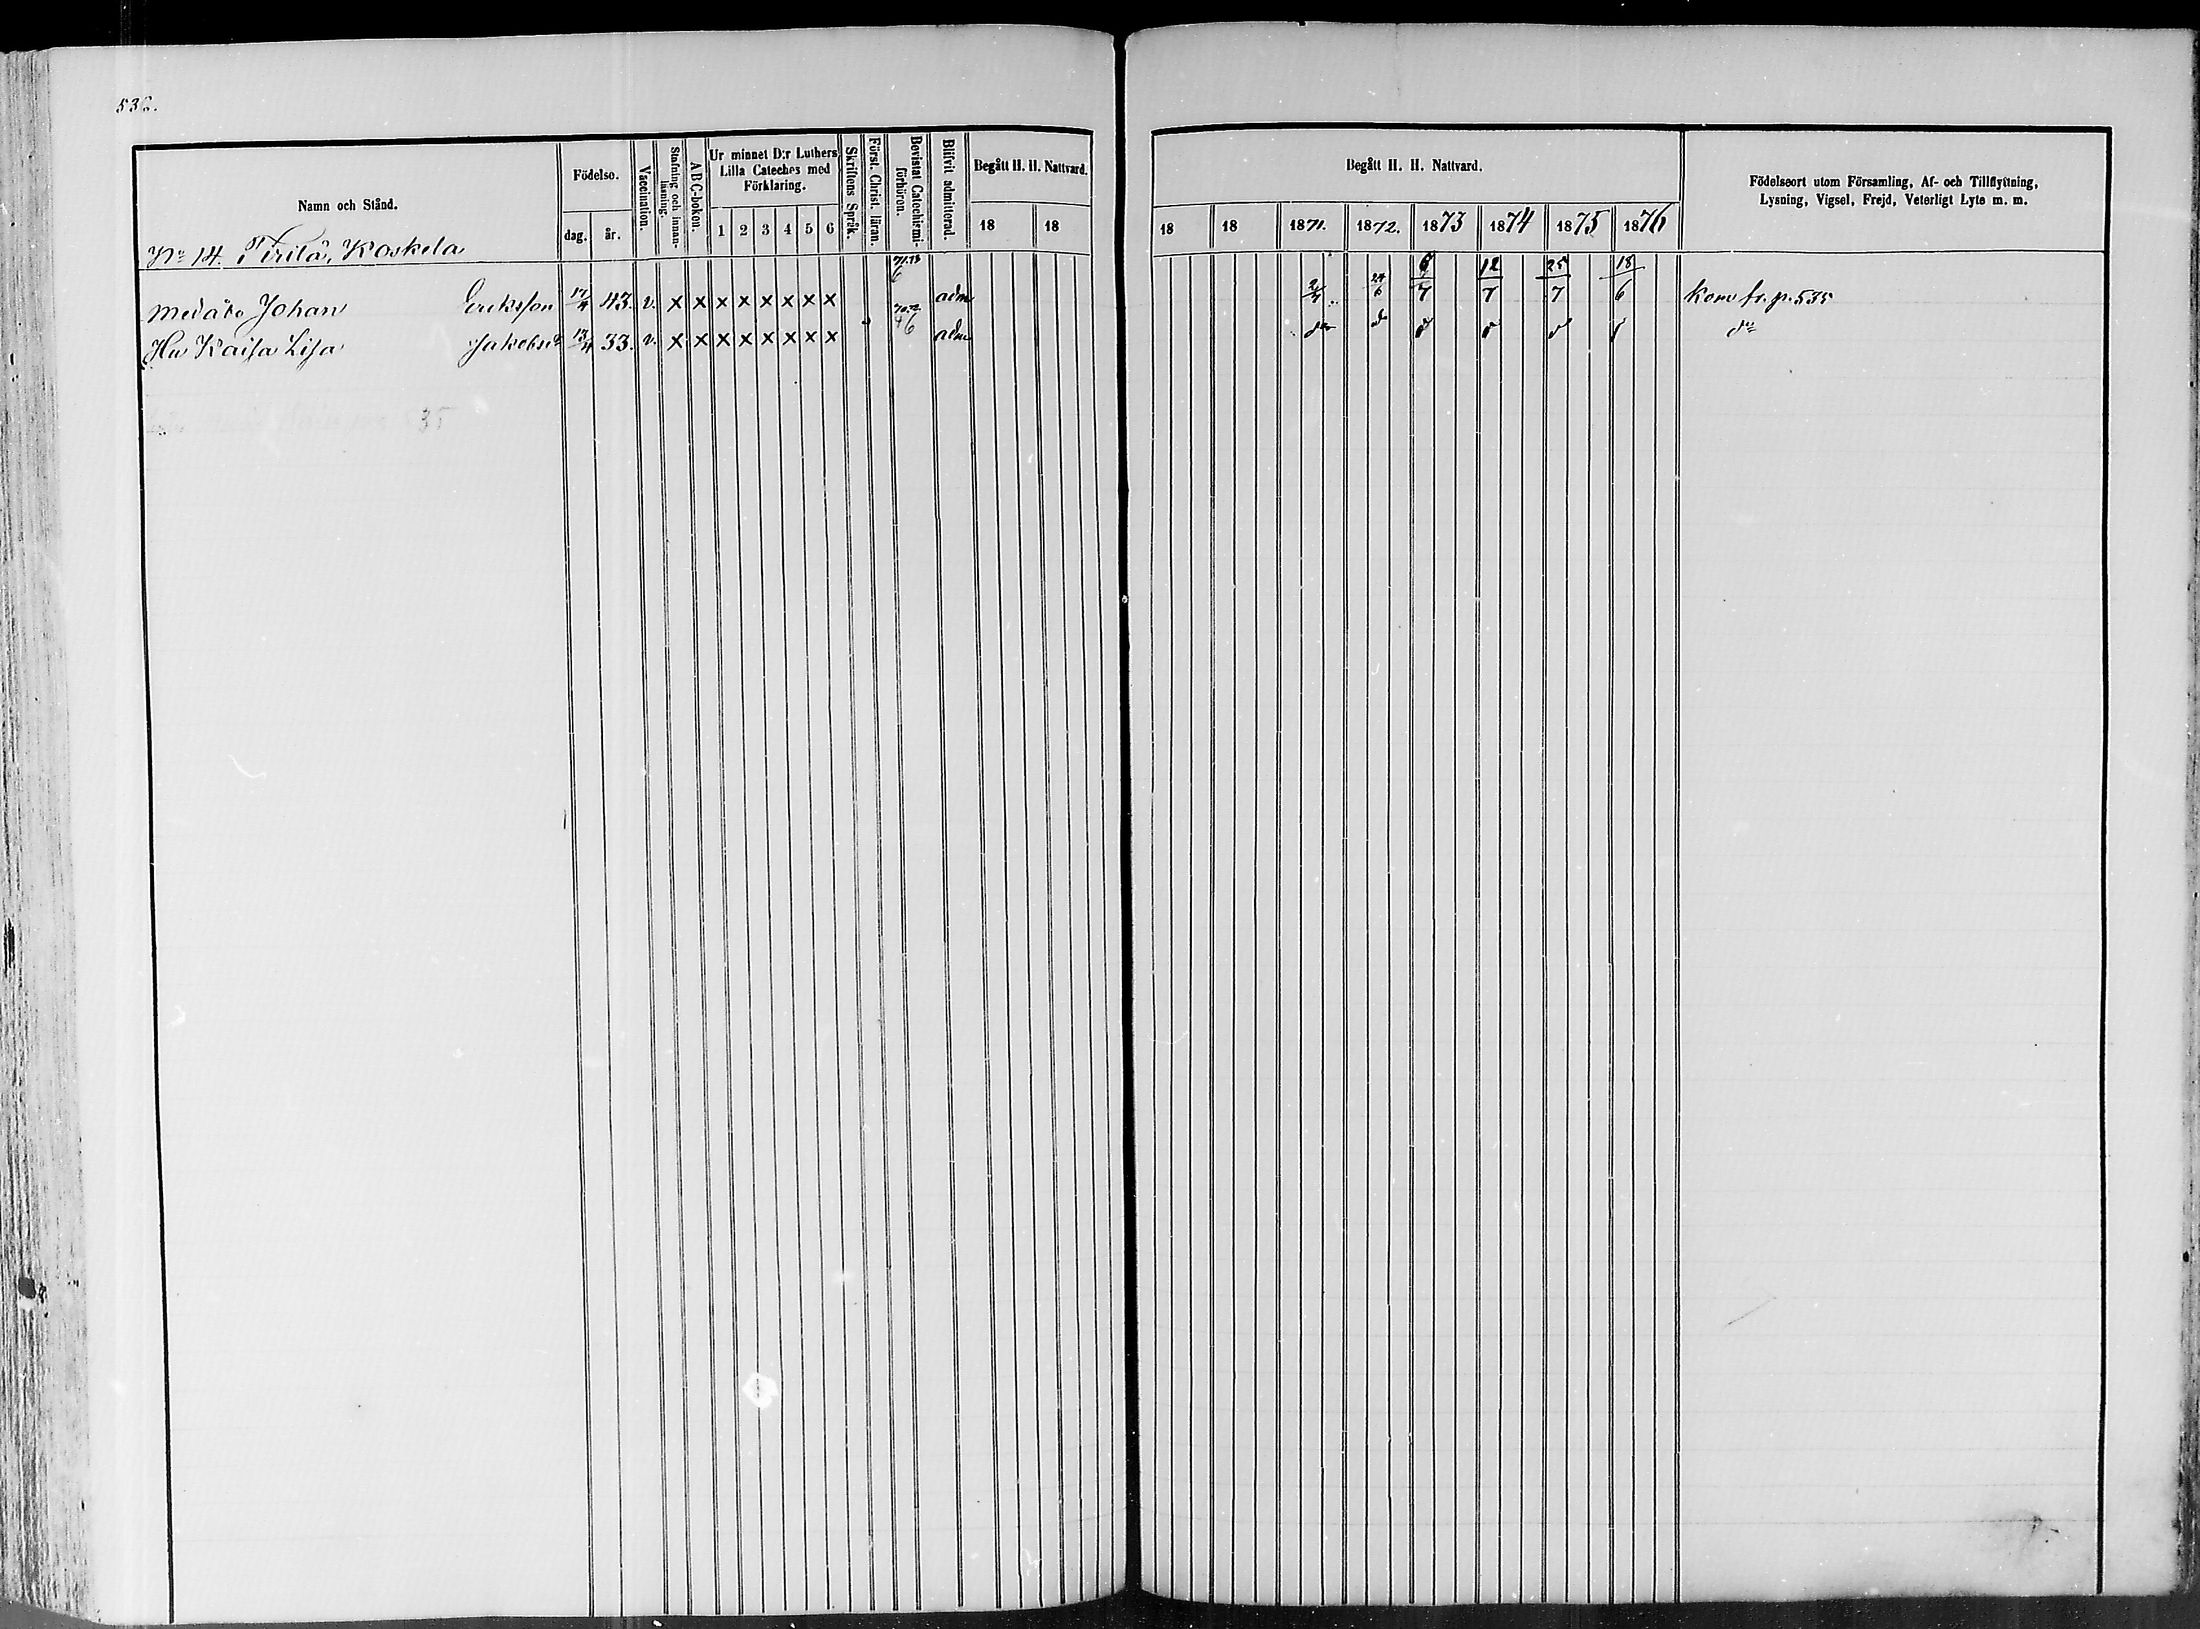 536.
Namn och Stånd.
Födelse.
dag. år.
Vaccination.
Stafning och innan-
läsning.
ABC-boken.
Ur minnet D:r Luthers
Lilla Cateches med
Förklaring.
1 2 3 4 5 6
Skriftens Språk.
Först. Christ. läran.
Bevistat Catechismi-
förhören.
Blifvit admitterad.
Begått H. H. Nattvard.
18 18
Begått H. H. Nattvard.
18 18 1871. 1872. 1873 1874 1875 1876
Födelseort utom Församling, Af- och Tillflyttning,
Lysning, Vigsel, Frejd, Veterligt Lyte m. m.
No 14. Tirilä, Koskela
Johan Eriksson 17/4 43. v. x x x x x x x x adm 2/7 24/6 6/7 12/7 25/7 18/6 kom fr. p. 535
Hu Kaisa Lisa Jakobsd 13/4 33. v. x x x x x x x x adm do do
35